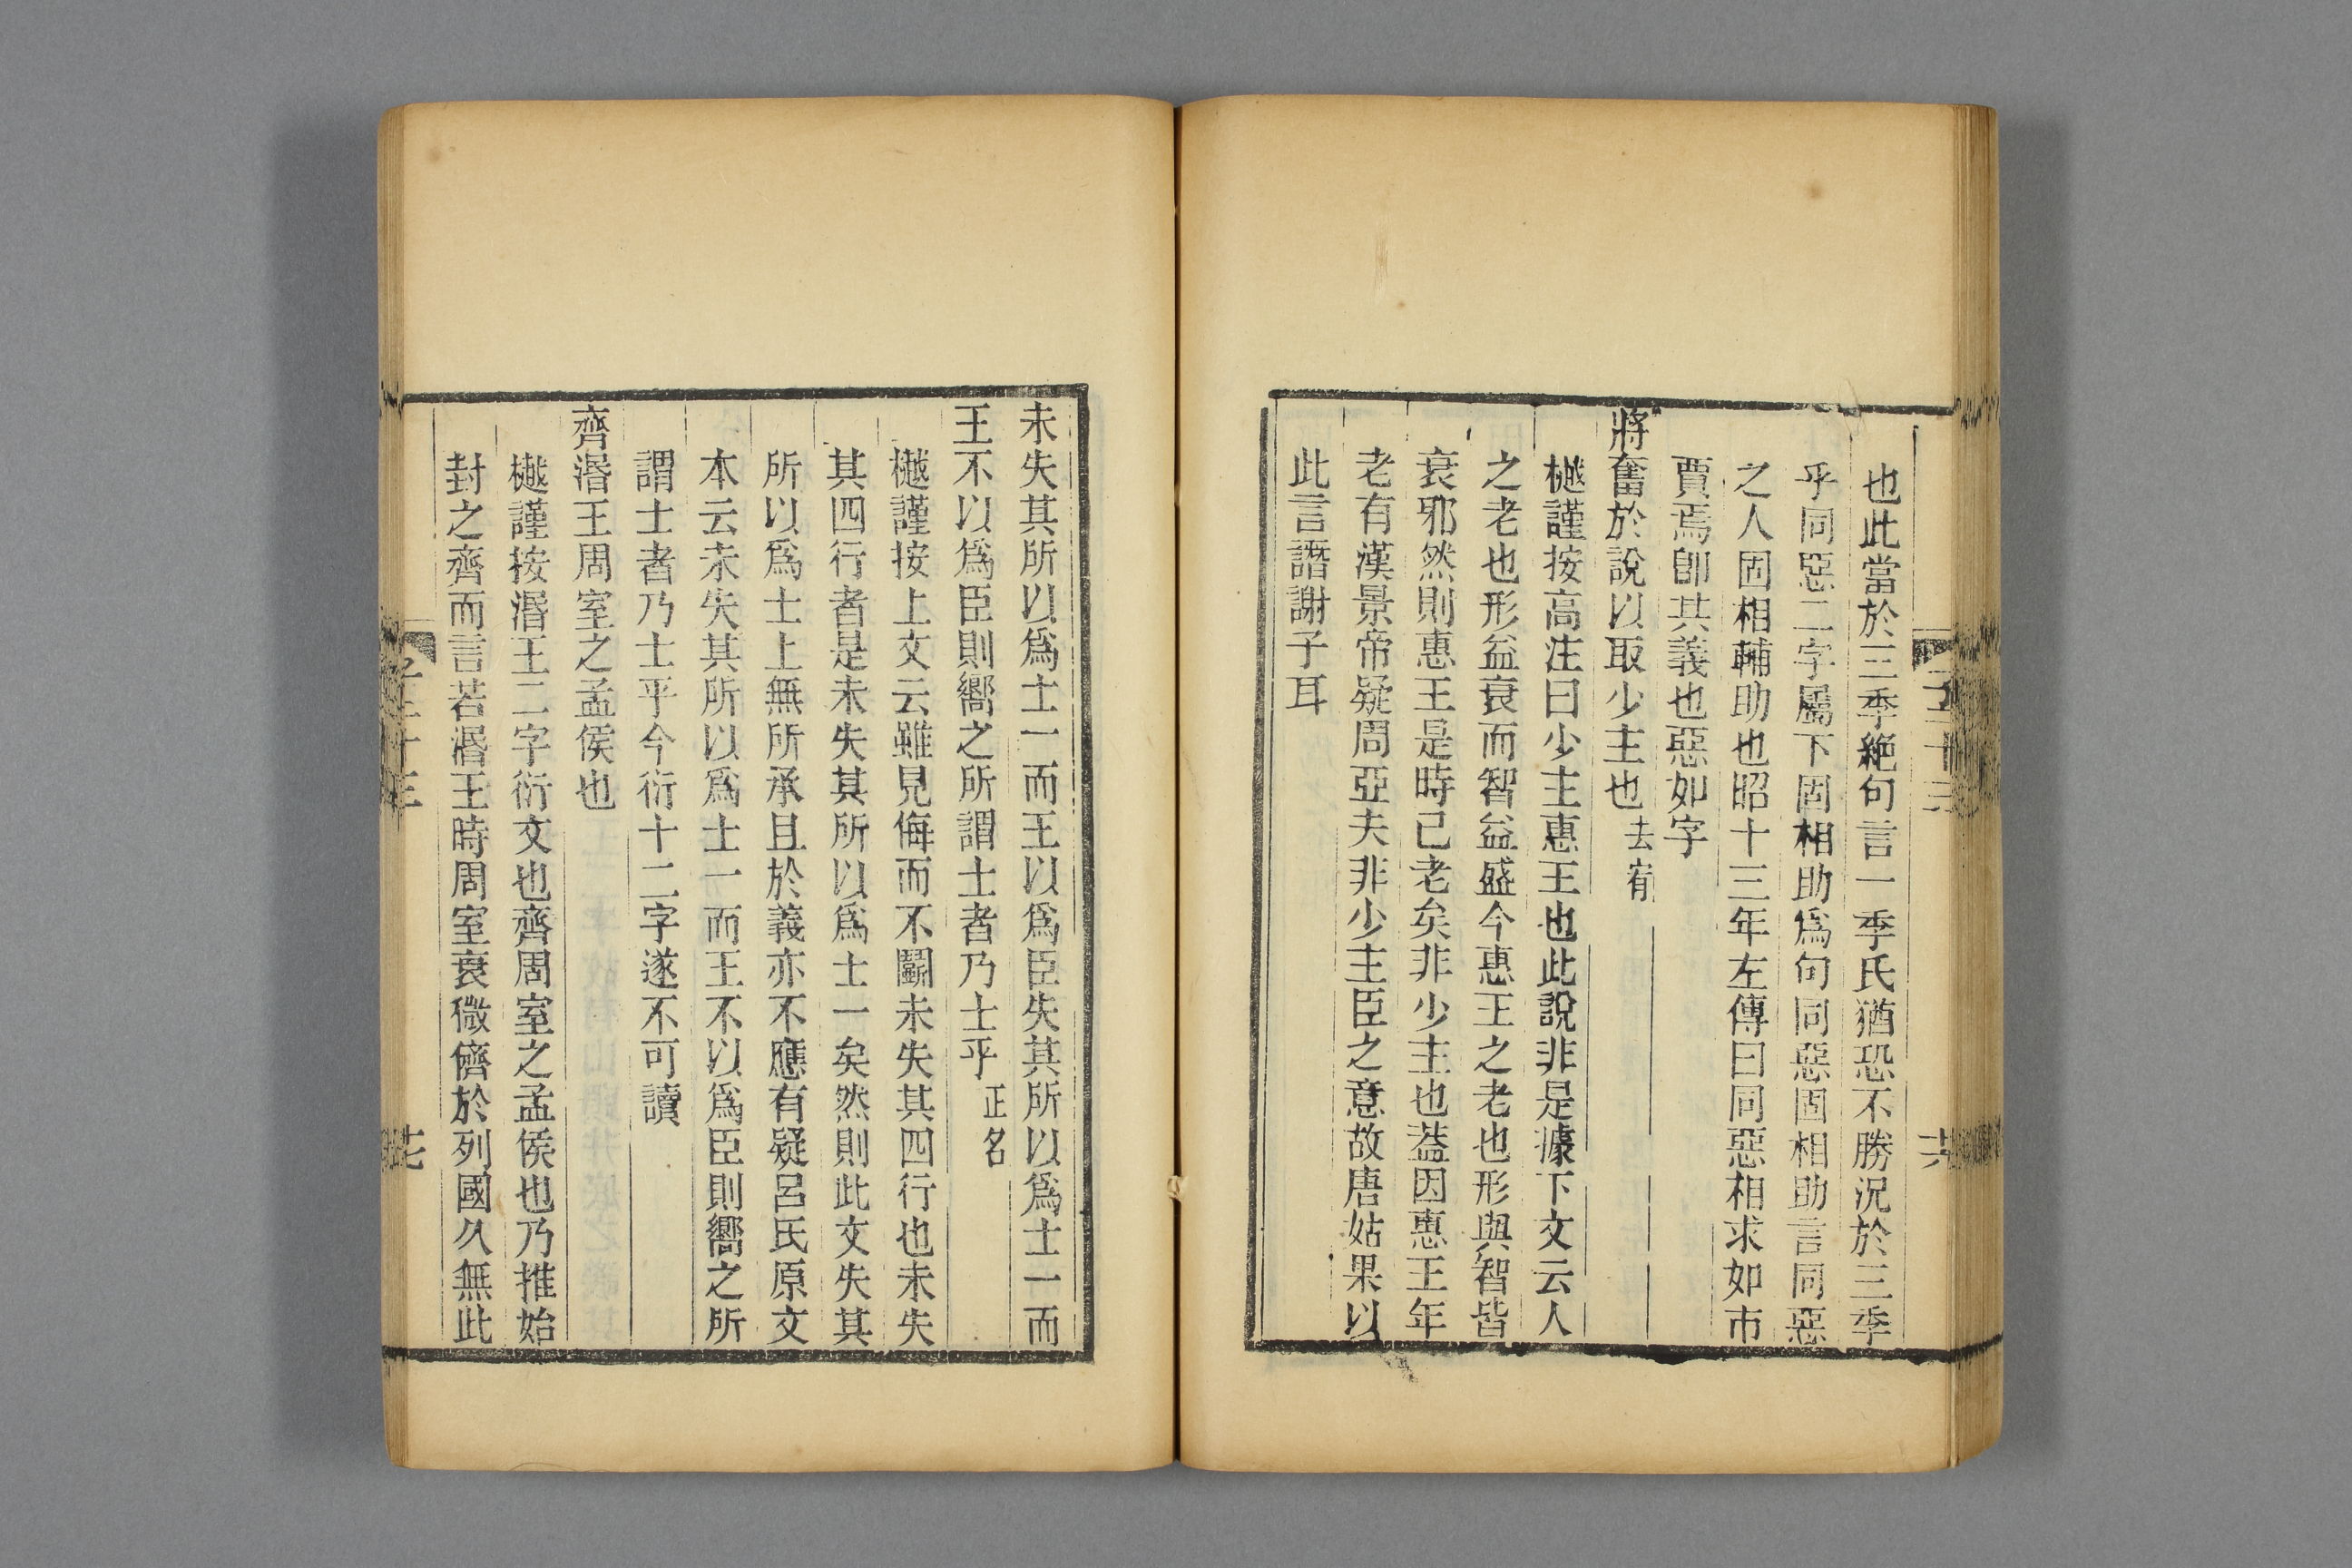 也此當於三季絶句言一季氏猶恐不勝況於三季
乎同惡二字屬下固相助爲句同惡固相助言同惡
之人固相輔助也昭十三年左傳曰同惡相求如市
賈焉卽其義也惡如字
將奮於說以取少主也去宥
樾謹按高注曰少主惠王也此說非是據下文云人
之老也形益衰而智益盛今惠王之老也形與智皆
衰邪然則惠王是時已老矣非少主也葢因惠王年
老有漢景帝疑周亞夫非少主臣之意故唐姑果以
此言譖謝子耳
未失其所以爲士一而王以爲臣失其所以爲士一而
王不以爲臣則嚮之所謂士者乃士乎正名
樾謹按上文云雖見侮而不鬭未失其四行也未失
其四行者是未失其所以爲士一矣然則此文失其
所以爲士上無所承且於義亦不應有疑呂氏原文
本云未失其所以爲士一而王不以爲臣則嚮之所
謂士者乃士乎今衍十二字遂不可讀
齊湣王周室之孟侯也
樾謹按湣王二字衍文也齊周室之孟侯也乃推始
封之齊而言若湣王時周室衰微儕於列國久無此